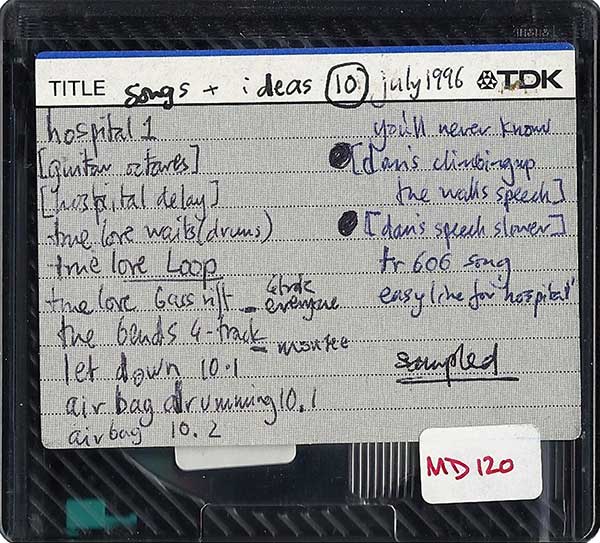 TITLE songs + ideas 10 july 1996 TDK
hospital 1
[guitar octaves]
[hospital delay]
true love waits (drums)
true love Loop
true love bass riff -
everyone
the bends 4-track
let down 10.1
air bag drumming 10.1
airbag 10.2
you'll never know
[dan's climbing up
the walls speech]
[dan's speech slower]
tr 606 song
easy line for 'hospital'
sampled
MD 120